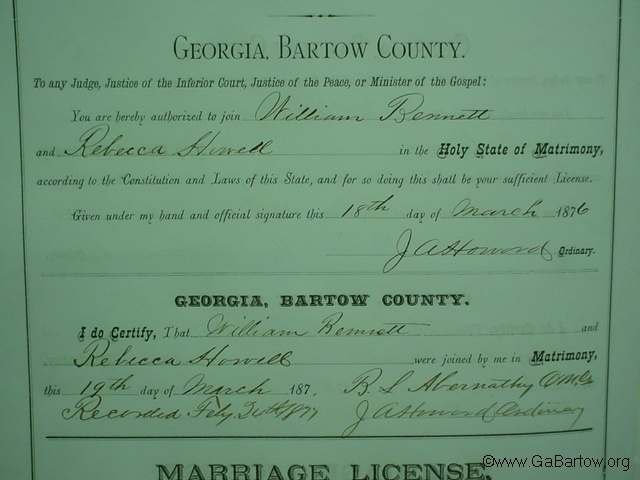 GEORGIA, BARTOW COUNTY.
To any Judge, Justice of the Inferior Court, Justice of the Peace, or Minister of the Gospel:
You are hereby authorized to join William Bennett
and Rebecca Howell in the Holy State of Matrimony,
according to the Constitution and Laws of this State, and for so doing this shall be your sufficient License.
Given under my hand and official signature this 18th day of March 1876
J A Howard Ordinary.
GEORGIA, BARTOW COUNTY.
I do Certify, That William Bennett and
Rebecca Howell were joined by me in Matrimony,
this 19th day of March 187. B. L Abernathy
Recorded Feby 1877 J A Howard Ordinary
MARRIAGE LICENSE.
©www.GaBartow.org